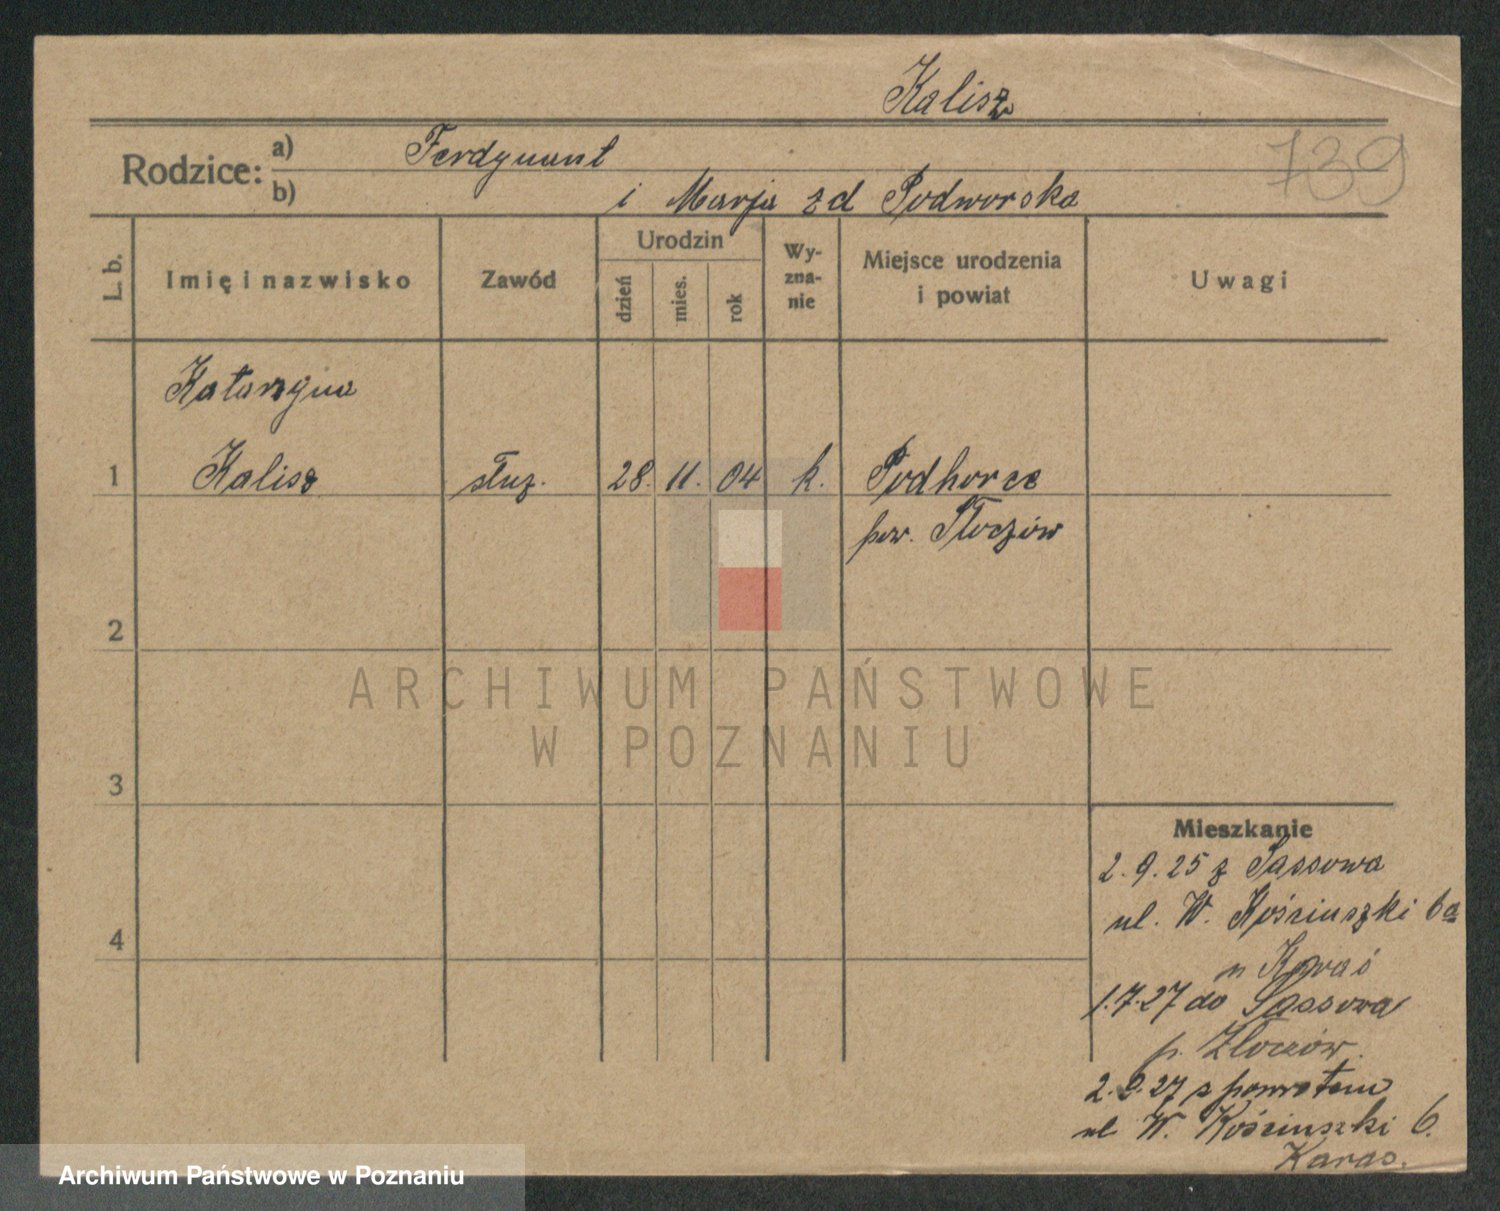 Kalisz
139
Rodzice: a) Ferdynant
b) i Marja zd Podworska
L. b.
Imię i nazwisko
Zawód
Urodzin
dzień
mies.
rok
Wy-
zna-
nie
Miejsce urodzenia
i powiat
Uwagi
Katarzyna
1 Kalisz służ. 28. 11. 04 k. Podhorce
pow. Złoczów
2
3
4
Mieszkanie
2.9.25 z Sassowa
ul. W. Kościuszki 6a
u
1.7.27 do Sassowa
p. Złoczów.
2.9.27 z powrotem
ul W. Kościuszki 6.
Karaś.
ARCHIWUM PAŃSTWOWE
W POZNANIU
Archiwum Państwowe w Poznaniu